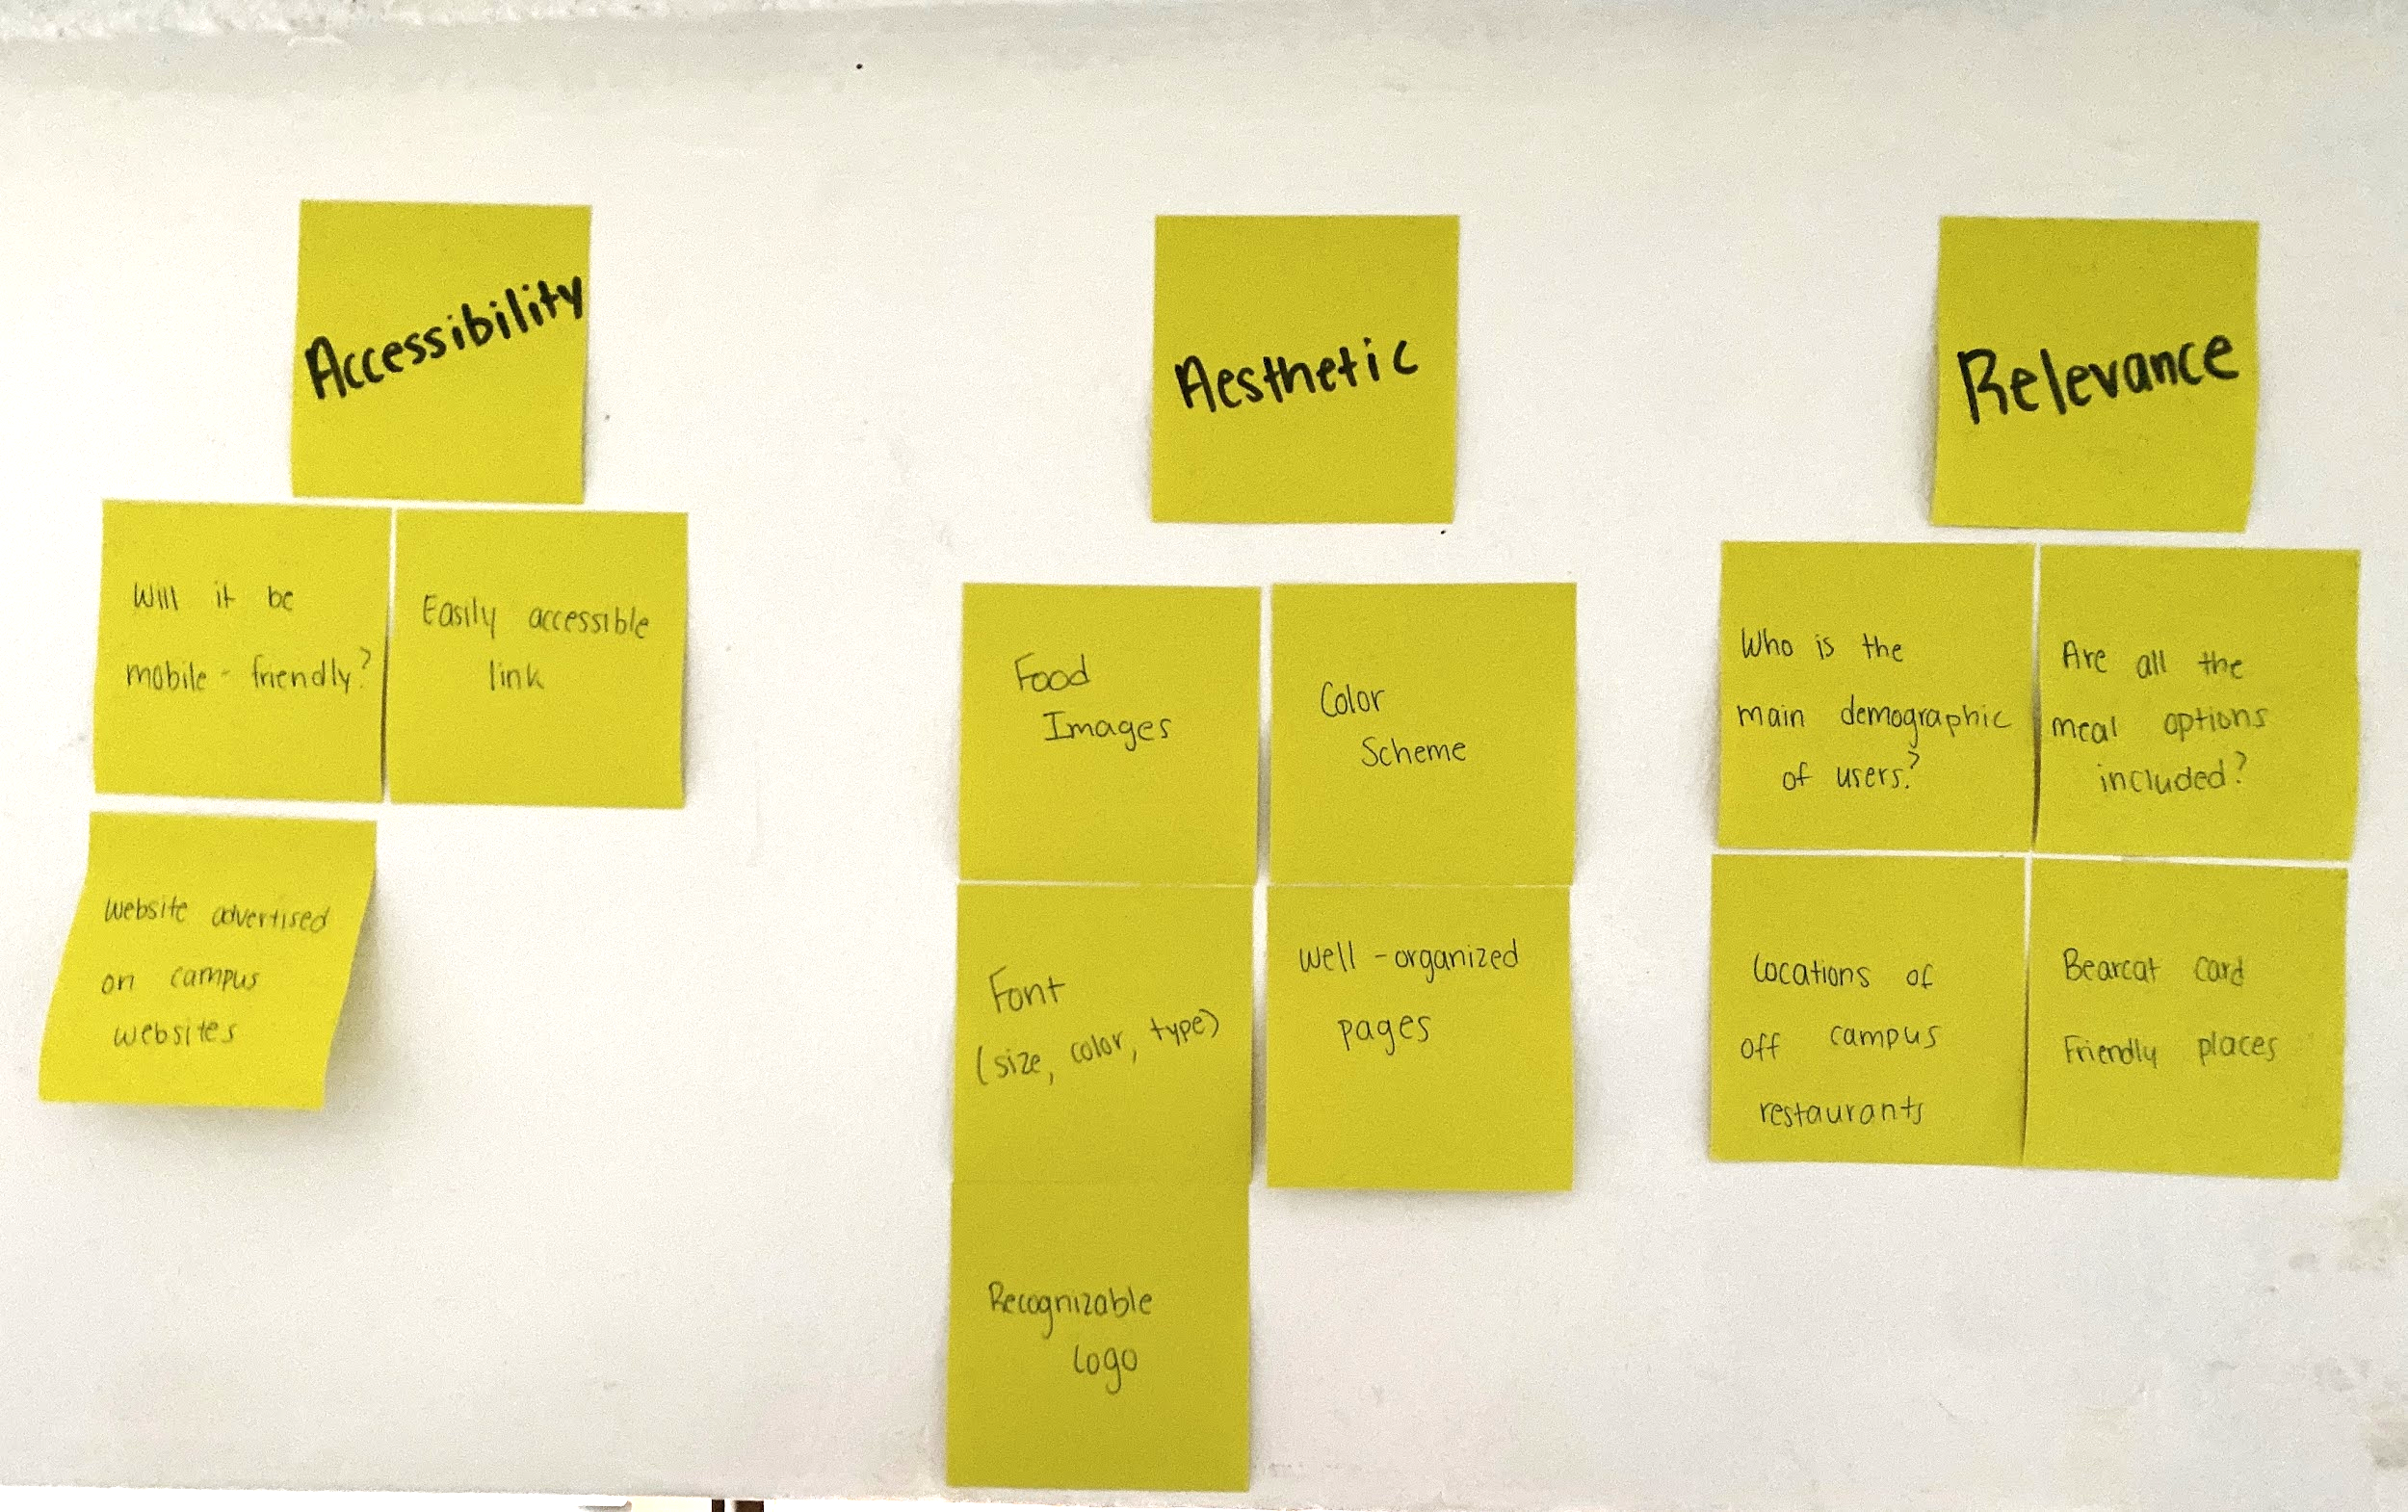 Accessibility
Will it be
mobile-friendly?
Easily accessible
link
website advertised
on campus
websites
Aesthetic
Food
Images
Color
Scheme
Font
(size, color, type)
well-organized
pages
Recognizable
logo
Relevance
Who is the
main demographic
of users?
Are all the
meal options
included?
Locations of
off campus
restaurants
Bearcat Card
Friendly places